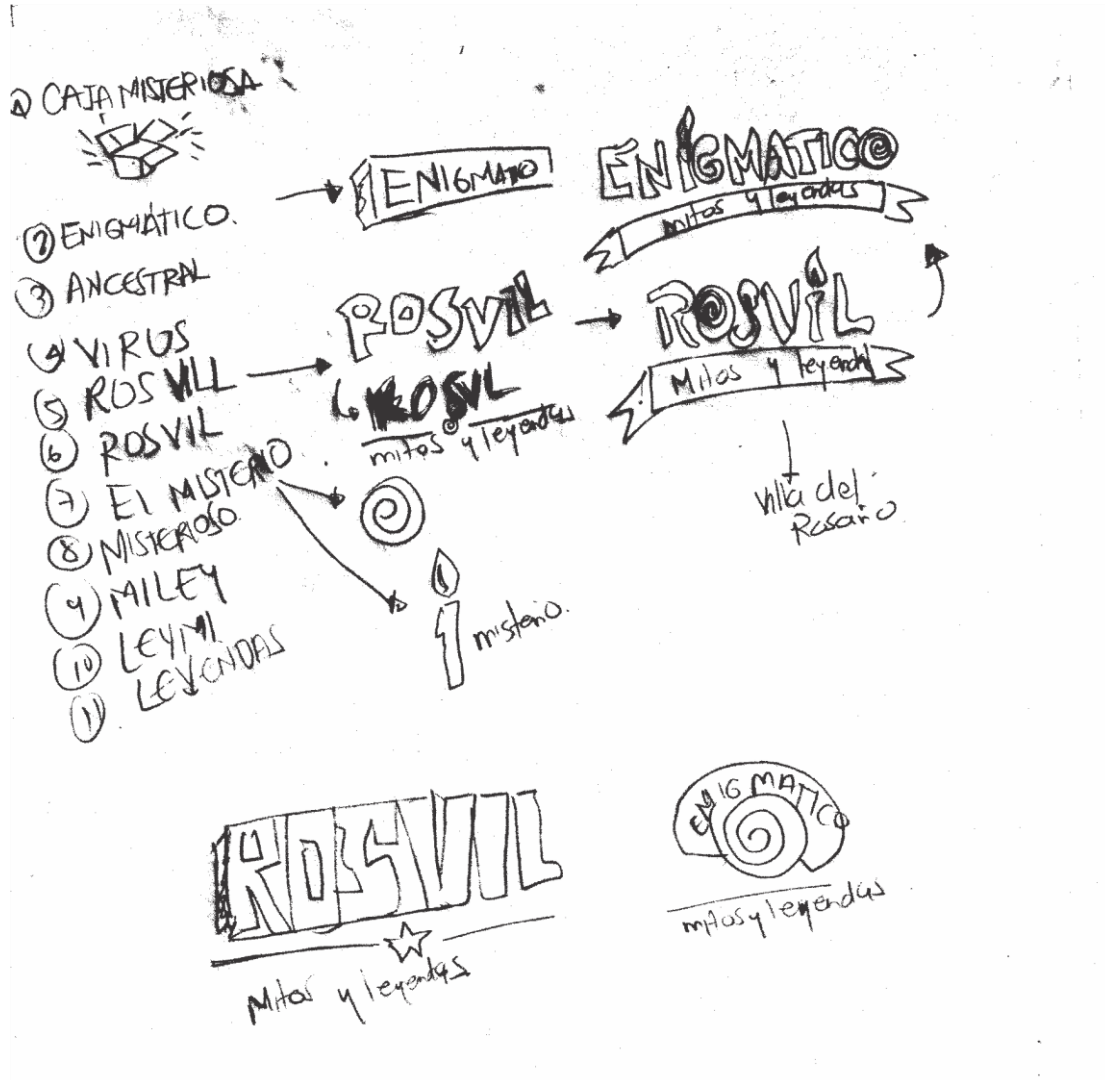 1 CAJA MISTERIOSA
2 ENIGMÁTICO.
3 ANCESTRAL
4 VIRUS
5 ROSVILL
6 ROSVIL
7 El MISTERIO
8 MISTERIOSO.
9 MILEY
10 LEYMI
11 LEYENDAS
ENIGMATO
ENIGMATICO
mitos y leyendas
ROSVIL
ROSVIL
Mitos y leyenda
ROSVL
mitos y leyendas
Villa del
Rosario
misterio.
ROSVIL
Mitos y leyendas
ENIGMATICO
mitos y leyendas